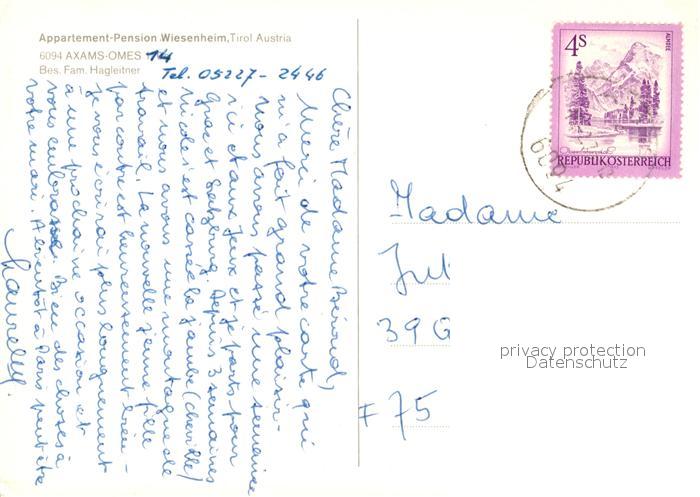 Appartement-Pension Wiesenheim, Tirol Austria
6094 AXAMS-OMES 14
Bes. Fam. Hagleitner Tel. 05227-2446
Chère Madame
Merci de votre carte qui
m'a fait grand plaisir -
Nous avons passé une semaine
ici et aux Jeux et je parts pour
Graz et Salzburg. Depuis 3 semaines
s'est cassé la jambe (cheville)
et nous avons une montagne de
travail. La nouvelle jeune fille
par contre est heureusement bien -
Je vous écrirai plus longuement
à une prochaine occasion et
vous embrasse. Bien des choses à
votre mari. A bientôt à Paris peut-être
4S
ALMSEE
REPUBLIK ÖSTERREICH
6094
Madame
Jul
39 G
F 75
privacy protection
Datenschutz